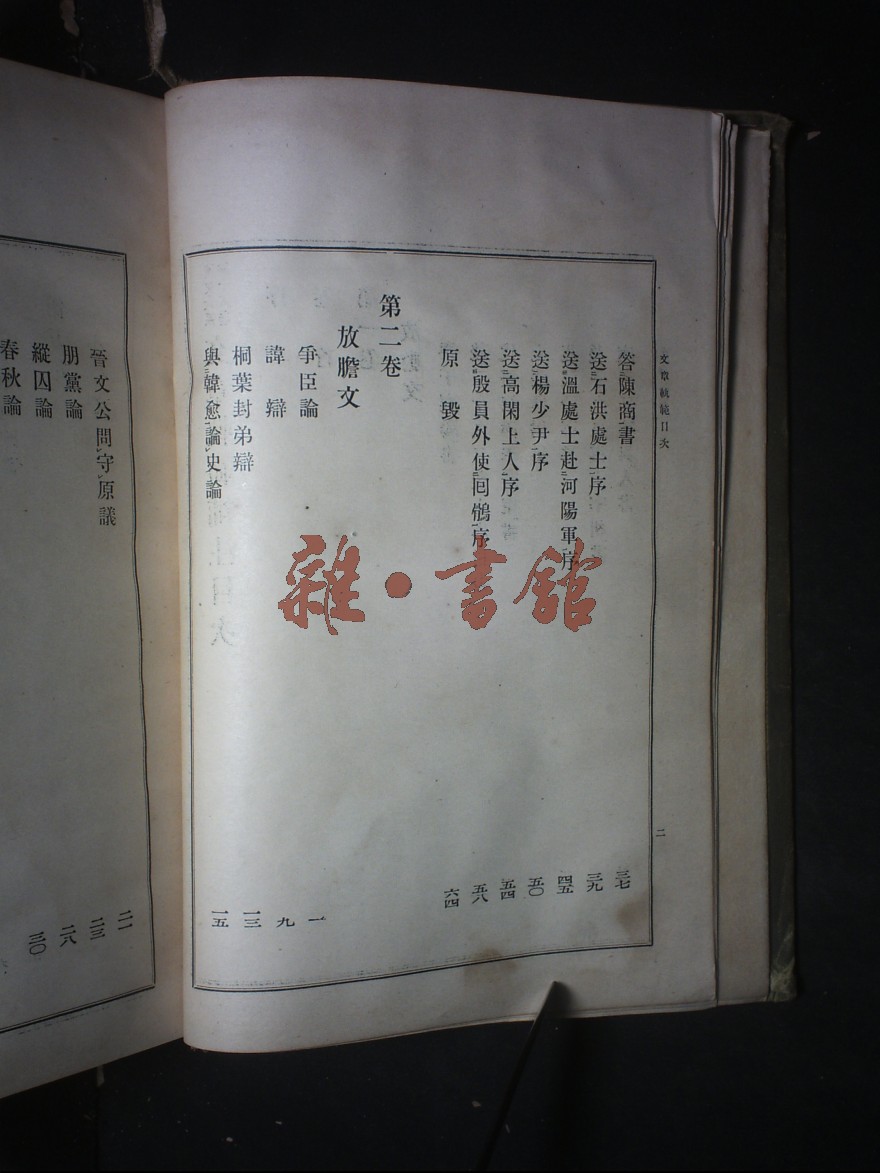 文章軌範目次
二
答陳商書 三七
送石洪處士序 三九
送溫處士赴河陽軍序 四五
送楊少尹序 五〇
送高閑上人序 五四
送殷員外使回鶻序 五八
原毀 六四
第二卷
放膽文
爭臣論 一
諱辯 九
桐葉封弟辯 一三
與韓愈論史論 一五
晉文公問守原議 二一
朋黨論 二三
縱囚論 二八
春秋論 三〇
雜·書館